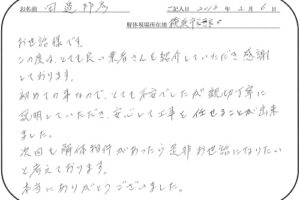 お名前 田邉邦彦 ご記入日 2018年2月6日
解体現場所在地 横浜市
お世話様です。
この度は、とても良い業者さんを紹介していただき感謝
しております。
初めての事なので、とても不安でしたが親切丁寧に
説明していただき、安心して工事を任せることが出来
ました。
次回も解体物件があったら是非お世話になりたい
と考えております。
本当にありがとうございました。